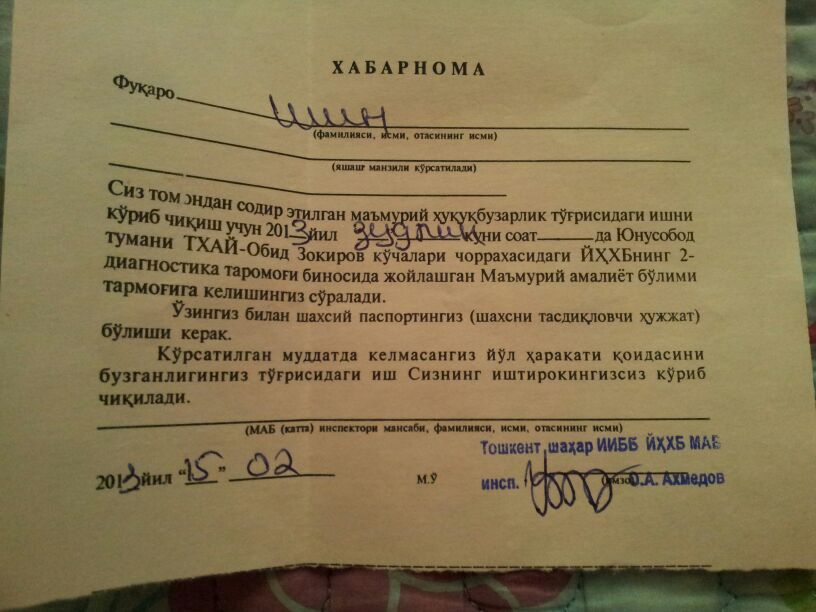 ХАБАРНОМА
Фуқаро
(фамилияси, исми, отасининг исми)
(яшаш манзили кўрсатилади)
Сиз томондан содир этилган маъмурий ҳуқуқбузарлик тўғрисидаги ишни
кўриб чиқиш учун 2013 йил зудлик куни соат да Юнусобод
тумани ТХАЙ-Обид Зокиров кўчалари чоррахасидаги ЙҲХБнинг 2-
диагностика таромоғи биносида жойлашган Маъмурий амалиёт бўлими
тармоғига келишингиз сўралади.
Ўзингиз билан шахсий паспортингиз (шахсни тасдиқловчи ҳужжат)
бўлиши керак.
Кўрсатилган муддатда келмасангиз йўл ҳаракати қоидасини
бузганлигингиз тўғрисидаги иш Сизнинг иштирокингизсиз кўриб
чиқилади.
(МАБ (катта) инспектори мансаби, фамилияси, исми, отасининг исми)
Тошкент шаҳар ИИББ ЙҲХБ МАБ
2013 йил “15” 02 М.Ў инсп. (имзо) О.А. Ахмедов